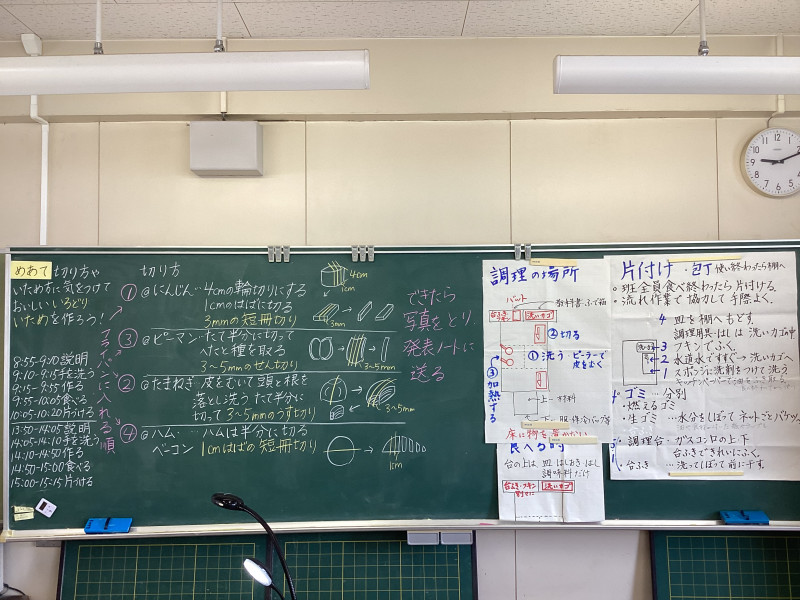 めあて 切り方や
いため方に気をつけて
おいしいいろどり
いためを作ろう!
8:55-9:20 説明
9:10-9:15手を洗う
9:15-9:55 作る
9:55-10:05食べる
10:05-10:20片付ける
13:50-14:05 説明
14:05-14:10手を洗う
14:10-14:50 作る
14:50-15:00食べる
15:00-15:15片付ける
フライパンに入れる順
切り方
① @にんじん…4cmの輪切りにする
1cmのはばに切る
3mmの短冊切り
4cm
1cm
3mm
③ @ピーマン…たて半分に切って
へたと種を取る
3~5mmのせん切り
3~5mm
② @たまねぎ 皮をむいて頭と根を
落とし洗う たて半分に
切って 3~5mmのうす切り
3~5mm
④ @ハム… ハムは半分に切る
ベーコン 1cmはばの短冊切り
1cm
できたら
写真をとり
発表ノートに
送る
調理の場所
バット
教科書・ふで箱
洗いカゴ
②切る
①洗う ピーラーで
皮をむく
③加熱する
上…材料
床に物を置かない
食べる時
台の上は 皿・はし・おき・はし
調味料だけ
洗いカゴ
片付け ・包丁 使い終わったら棚へ
○班全員食べ終わったら片付ける。
○流れ作業で協力して手際よく。
4 皿を棚へもどす。
調理用具・はしは洗いカゴ中
3 フキンでふく。
2 水道水ですすぐ→洗いカゴへ
1 スポンジに洗剤をつけて洗う
ゴミ…分別
・燃えるゴミ
・生ゴミ …水分をしぼって ネットごとバケツへ
・調理台・ガスコンロの上下
台ふきできれいにふく。
・台ふき …洗ってしぼって前に干す。